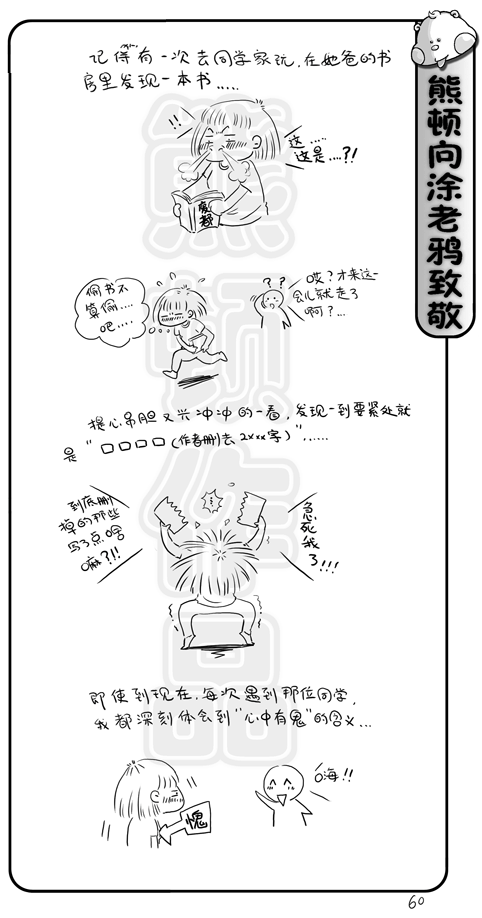 熊顿向涂老鸦致敬
记得有一次去同学家玩,在她爸的书
房里发现一本书.....
!!
这.....
这是....?!
废都
偷书不
算偷....
吧....
??
哎?才来这一
会儿就走了
啊?...
提心吊胆又兴冲冲的一看,发现一到要紧处就
是“口口口口(作者删去2xxx字)”......
到底删
掉的那些
写了点啥
嘛?!!
急死我了!!!
即使到现在,每次遇到那位同学,
我都深刻体会到“心中有鬼”的含义...
愧
嗨!!
熊顿作品
60